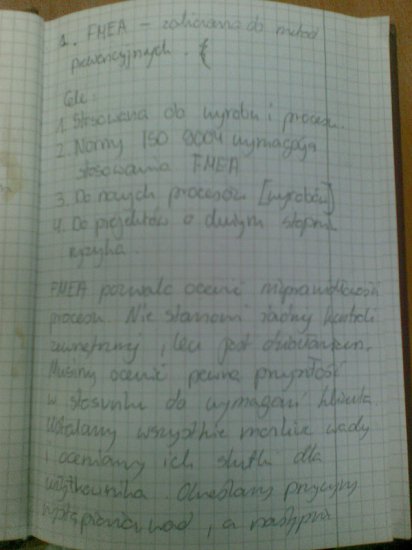 1. FMEA – zaliczana do metod
prewencyjnych.
Cele:
1. Stosowana do wyrobu i procesu.
2. Normy ISO 9004 wymagają
stosowania FMEA
3. Do nowych procesów [wyrobów]
4. Do projektów o dużym stopniu
ryzyka.
FMEA pozwala ocenić nieprawidłowości
procesu. Nie stanowi żadnej kontroli
zewnętrznej, lecz jest działaniem.
Musimy ocenić pewną przyszłość
w stosunku do wymagań klienta.
Ustalamy wszystkie możliwe wady
i oceniamy ich skutki dla
użytkownika. Określamy przyczyny
wystąpienia wad, a następnie